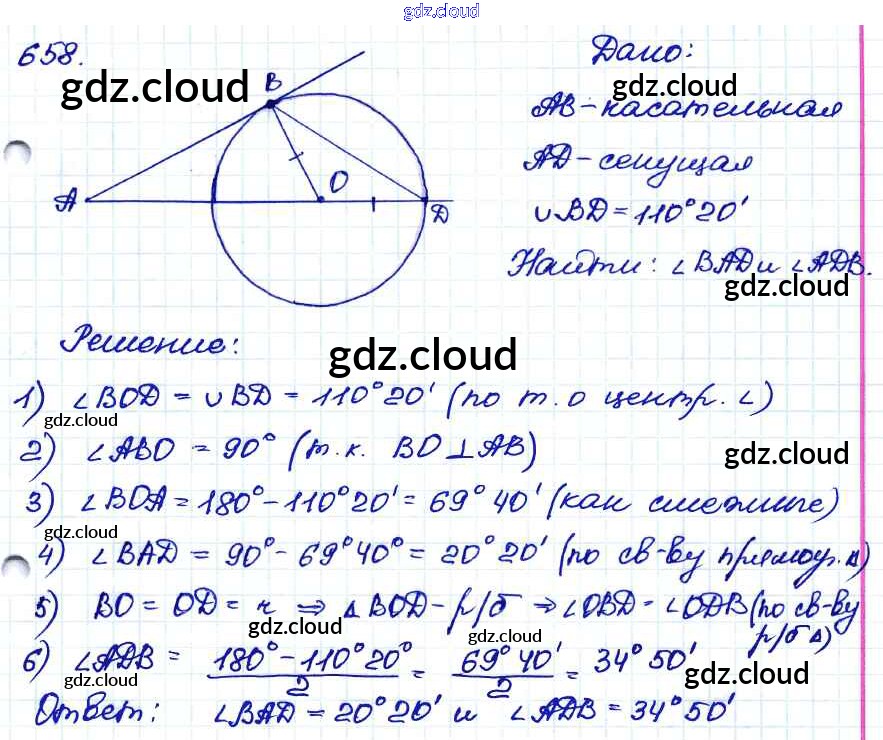 gdz.cloud
658.
gdz.cloud
B
A
O
D
Дано:
AB - касательная
AD - секущая
∪BD = 110°20'
Найти: ∠BAD и ∠ADB.
gdz.cloud
Решение:
gdz.cloud
1) ∠BOD = ∪BD = 110°20' (по т. о центр. ∠)
gdz.cloud
2) ∠ABO = 90° (т.к. BO ⊥ AB)
gdz.cloud
3) ∠BOA = 180° - 110°20' = 69°40' (как смежные)
gdz.cloud
4) ∠BAD = 90° - 69°40° = 20°20' (по св-ву прямоуг. Δ)
5) BO = OD = r ⇒ Δ BOD - р/б ⇒ ∠OBD = ∠ODB (по св-ву
р/б Δ)
gdz.cloud
gdz.cloud
6) ∠ADB = (180° - 110°20°)/2 = (69°40')/2 = 34°50'
gdz.cloud
gdz.cloud
Ответ: ∠BAD = 20°20' и ∠ADB = 34°50'
gdz.cloud